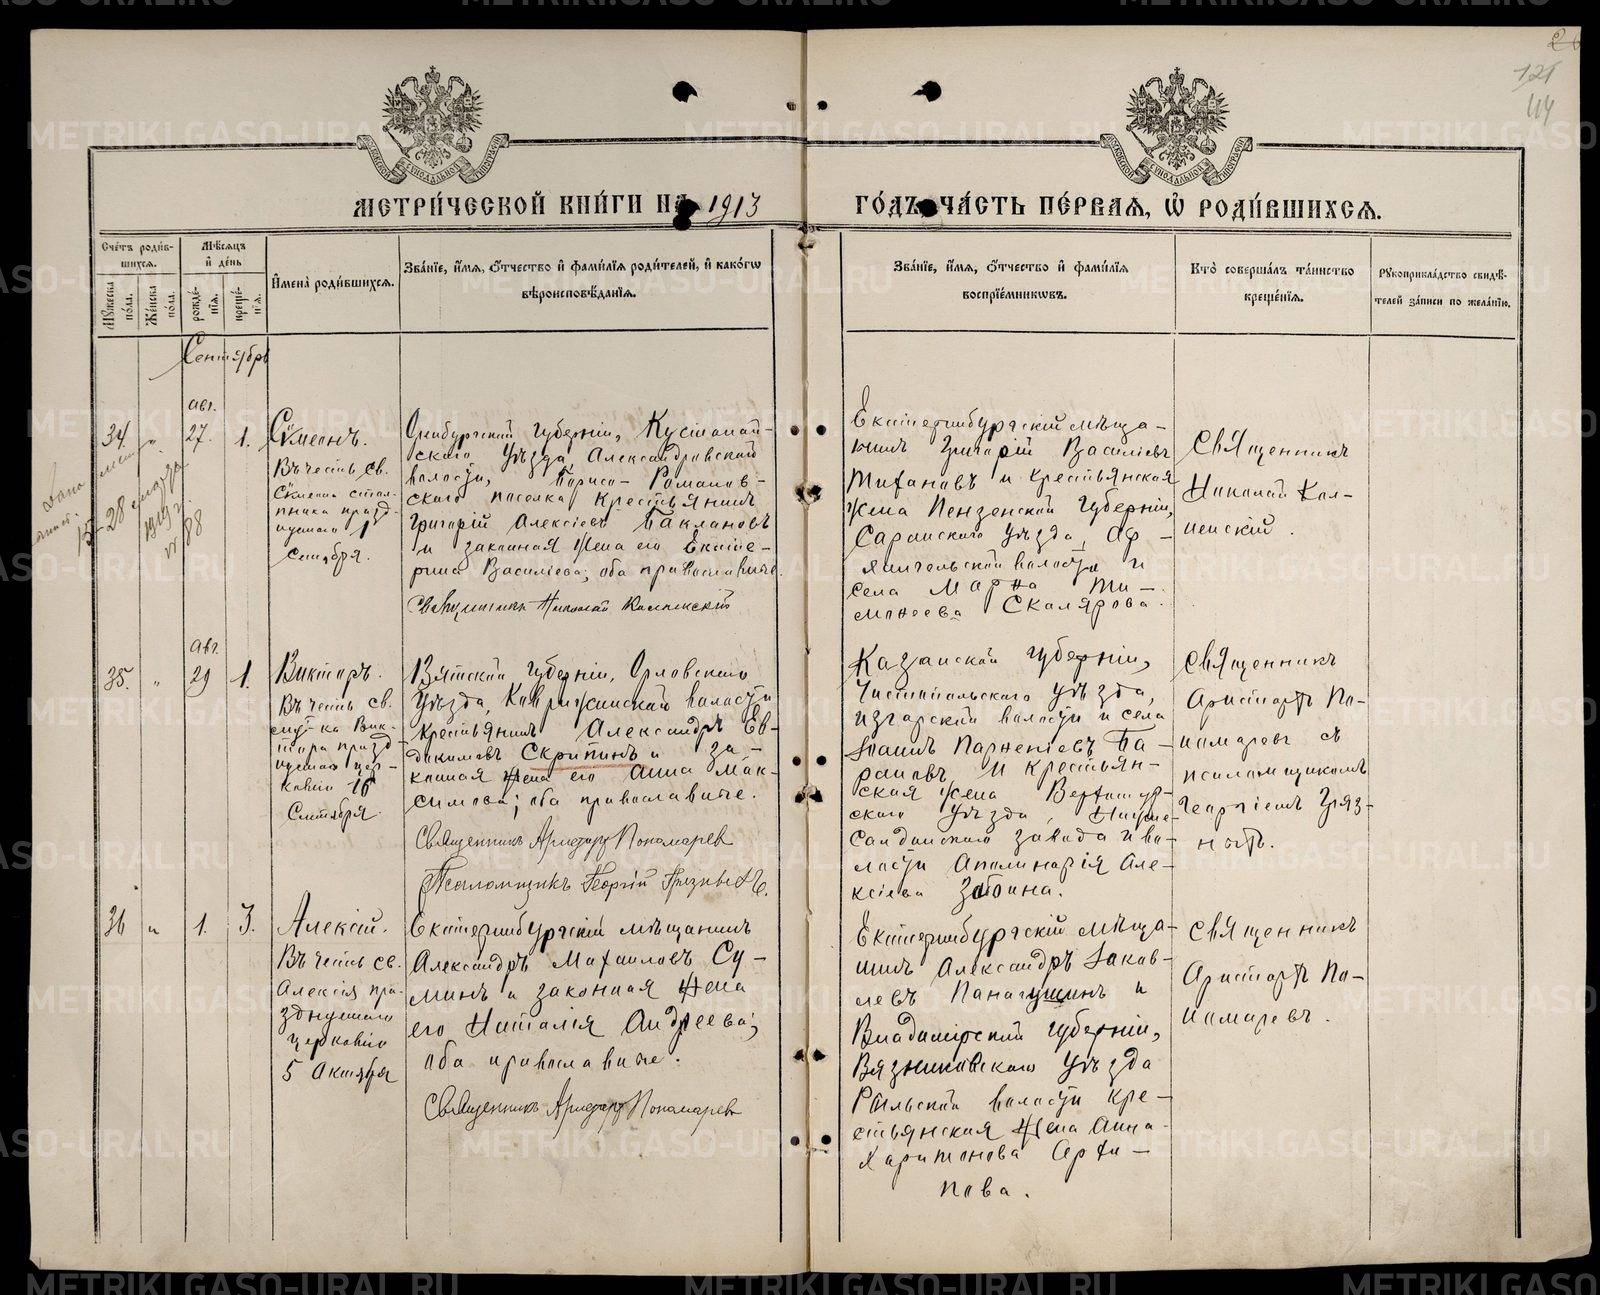 121
114
МЕТРИ́ЧЕСКОЙ КНИ́ГИ НА 1913
ГО́ДЪ ЧА́СТЬ ПЕ́РВАЯ, Ѡ҆ РОДИ́ВШИХСЯ.
Сче́тъ роди́в-
шихся.
Му́жеска по́ла.
Же́нска по́ла.
Мѣ́сяцъ
и҆ де́нь
рожде́-
нїя.
креще́-
нїя.
И҆мена̀ роди́вшихся.
Зва́нїе, и҆́мя, ѻ҆́тчество и҆ фами́лїя роди́телей, и҆ како́гѡ
вѣроисповѣ́данїя.
Зва́нїе, и҆́мя, ѻ҆́тчество и҆ фами́лїя
воспрїе́мникѡвъ.
Кто̀ соверша́лъ та́инство
креще́нїя.
Рукоприкла́дство свидѣ́-
телей за́писи по жела́нїю.
Сентябрь
34.
"
авг.
27.
1.
Сѵмеонъ.
Въ честь св.
Сѵмеона стол-
пника празд-
нуемаго 1
Сентября.
Оренбургской губерніи, Кустанай-
скаго уѣзда, Александровской
волости, Борисо-Романов-
скаго поселка крестьянинъ
Григорій Алексіевъ Баклановъ
и законная жена его Екате-
рина Васильева; оба православные.
Священникъ Николай Коллинскій
Екатеринбургскій мѣща-
нинъ Григорій Васильевъ
Тихановъ и крестьянская
жена Пензенской губерніи,
Саранскаго уѣзда,
волости и
села Марѳа Ти-
моѳеева Скалярова.
Священникъ
Николай Кол-
линскій.
Дано
28 марта
1919 г.
№ 88
35.
"
авг.
29
1.
Викторъ.
Въ честь св.
муч-ка Вик-
тора празд-
нуемаго цер-
ковію 16
Сентября.
Вятской губерніи, Орловскаго
уѣзда, волости
крестьянинъ Александръ Ев-
докимовъ Скрипинъ и за-
конная жена его Анна Мак-
симова; оба православные.
Священникъ Аристархъ Пономарев
Псаломщикъ Георгій Грязныхъ.
Казанской губерніи,
Чистопольскаго уѣзда,
Изгарской волости и села
Іоаннъ Парѳеніевъ Ба-
рановъ и крестьян-
ская жена Верхотур-
скаго уѣзда, Нижне-
Салдинскаго завода и во-
лости Аполинарія Але-
ксіева Зобнина.
Священникъ
Аристархъ По-
номаревъ съ
псаломщикомъ
Георгіемъ Гряз-
ныхъ.
36
"
1.
3.
Алексій.
Въ честь св.
Алексія пра-
зднуемаго
церковію
5 Октября
Екатеринбургскій мѣщанинъ
Александръ Михаиловъ Су-
минъ и законная жена
его Наталія Андреева;
оба православные.
Священникъ Аристархъ Пономарев
Екатеринбургскій мѣща-
нинъ Александръ Іаков-
левъ Панагушинъ и
Владимірской губерніи,
Вязниковскаго уѣзда
Рыльской волости кре-
стьянская жена Анна
Харитонова Архи-
пова.
Священникъ
Аристархъ По-
номаревъ.